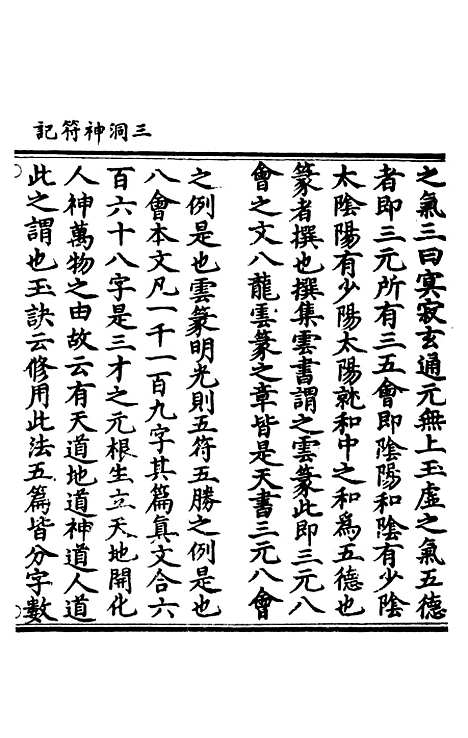 三洞神符記
之氣三曰㝠寂玄通元無上玉虛之氣五德
者即三元所有三五會即陰陽和陰有少陰
太陰陽有少陽太陽就和中之和為五德也
篆者撰也撰集雲書謂之雲篆此即三元八
會之文八龍雲篆之章皆是天書三元八會
之例是也雲篆明光則五符五勝之例是也
八會本文凡一千一百九字其篇真文合六
百六十八字是三才之元根生立天地開化
人神萬物之由故云有天道地道神道人道
此之謂也玉訣云修用此法五篇皆分字數